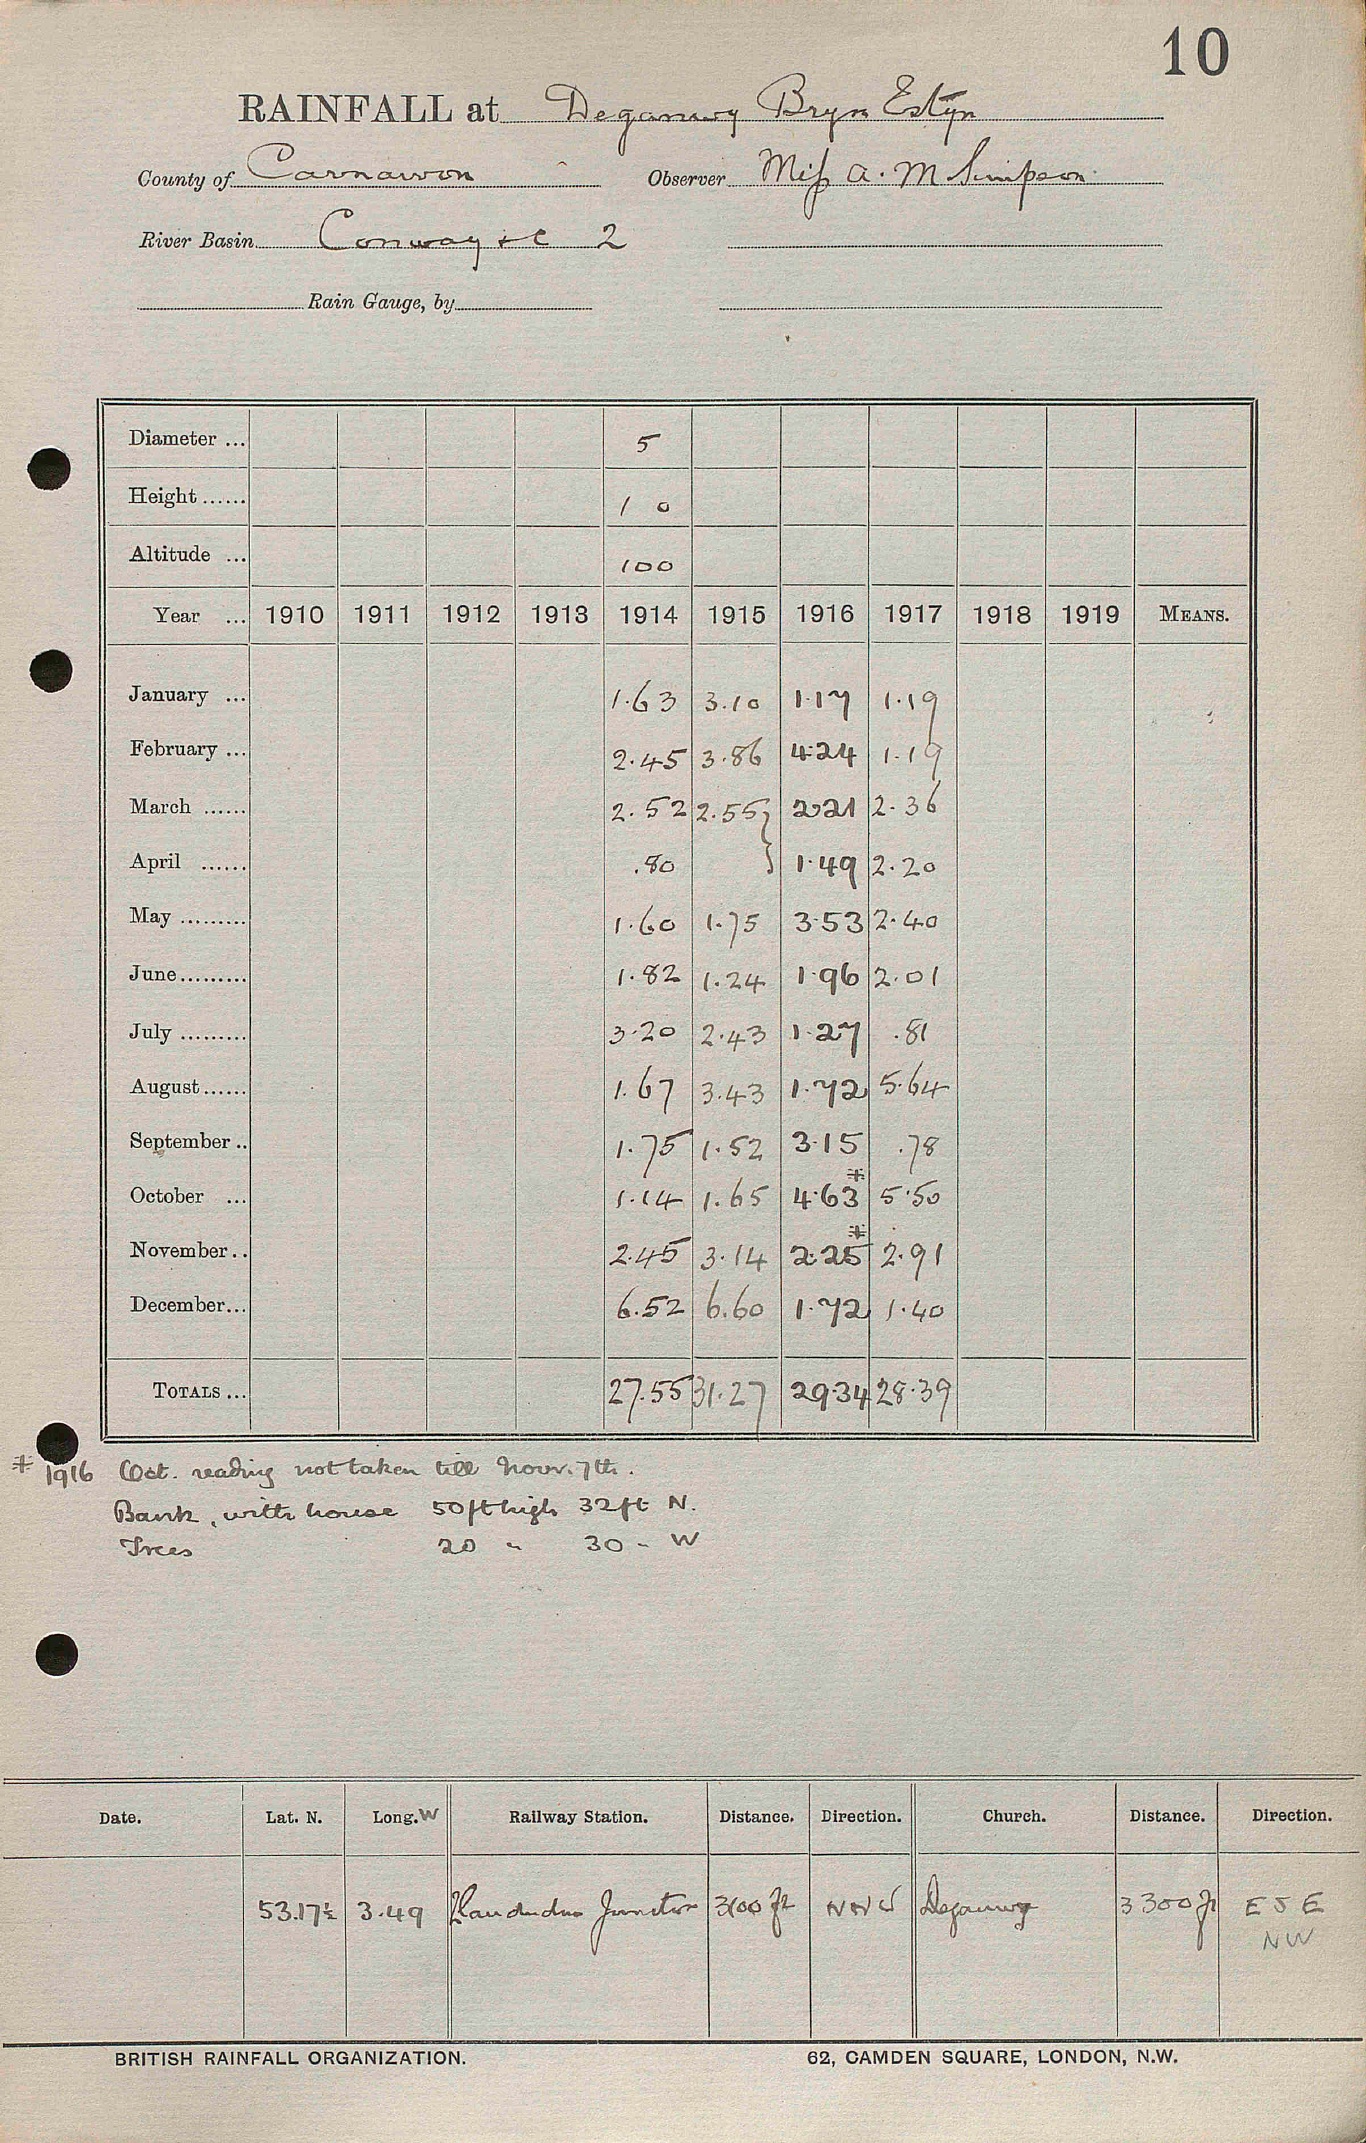 10
RAINFALL at Deganwy Bryn Estyn
County of Carnarvon Observer Miss A. M Simpson
River Basin Conway &c 2
Rain Gauge, by
Diameter ... 5
Height ...... 1 0
Altitude ... 100
Year ... 1910 1911 1912 1913 1914 1915 1916 1917 1918 1919 MEANS.
January ... 1.63 3.10 1.17 1.19
February ... 2.45 3.86 4.24 1.19
March ...... 2.52 2.55 } 2.21 2.36
April ...... .80 } 1.49 2.20
May ......... 1.60 1.75 3.53 2.40
June ......... 1.82 1.24 1.96 2.01
July ......... 3.20 2.43 1.27 .81
August ...... 1.67 3.43 1.72 5.64
September .. 1.75 1.52 3.15 .78
October ... 1.14 1.65 4.63* 5.50
November .. 2.45 3.14 2.25* 2.91
December ... 6.52 6.60 1.72 1.40
TOTALS ... 27.55 31.27 29.34 28.39
* 1916 Oct. reading not taken till Novr. 7th.
Bank, with house 50ft high 32ft N.
Trees 20 " 30 " W
Date. Lat. N. Long. W Railway Station. Distance. Direction. Church. Distance. Direction.
53.17½ 3.49 Llandudno Junction 3100 ft NNW Deganwy 3300 ft ESE
NW
BRITISH RAINFALL ORGANIZATION. 62, CAMDEN SQUARE, LONDON, N.W.